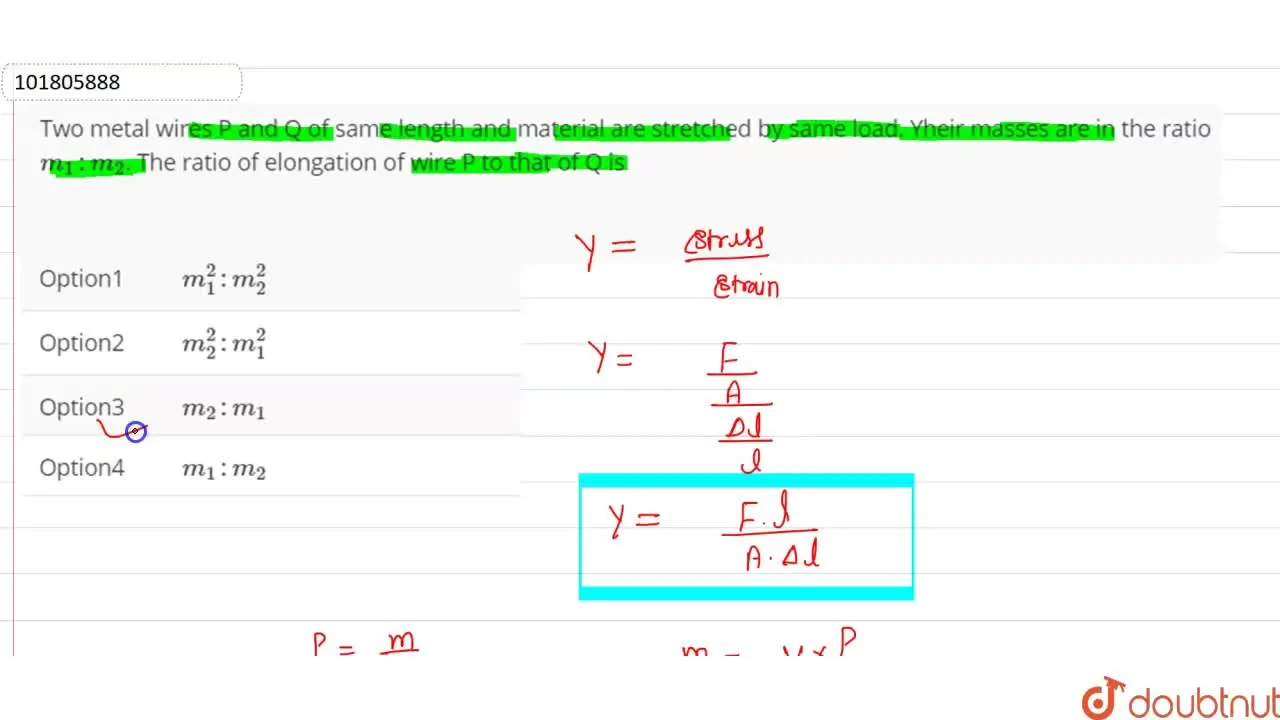 101805888
Two metal wires P and Q of same length and material are stretched by same load. Yheir masses are in the ratio
m₁ : m₂. The ratio of elongation of wire P to that of Q is
Option1 m₁² : m₂²
Option2 m₂² : m₁²
Option3 m₂ : m₁
Option4 m₁ : m₂
Y = Stress
Strain
Y = F
A
Δl
l
Y = F. l
A. Δl
P = m
m = V x P
doubtnut